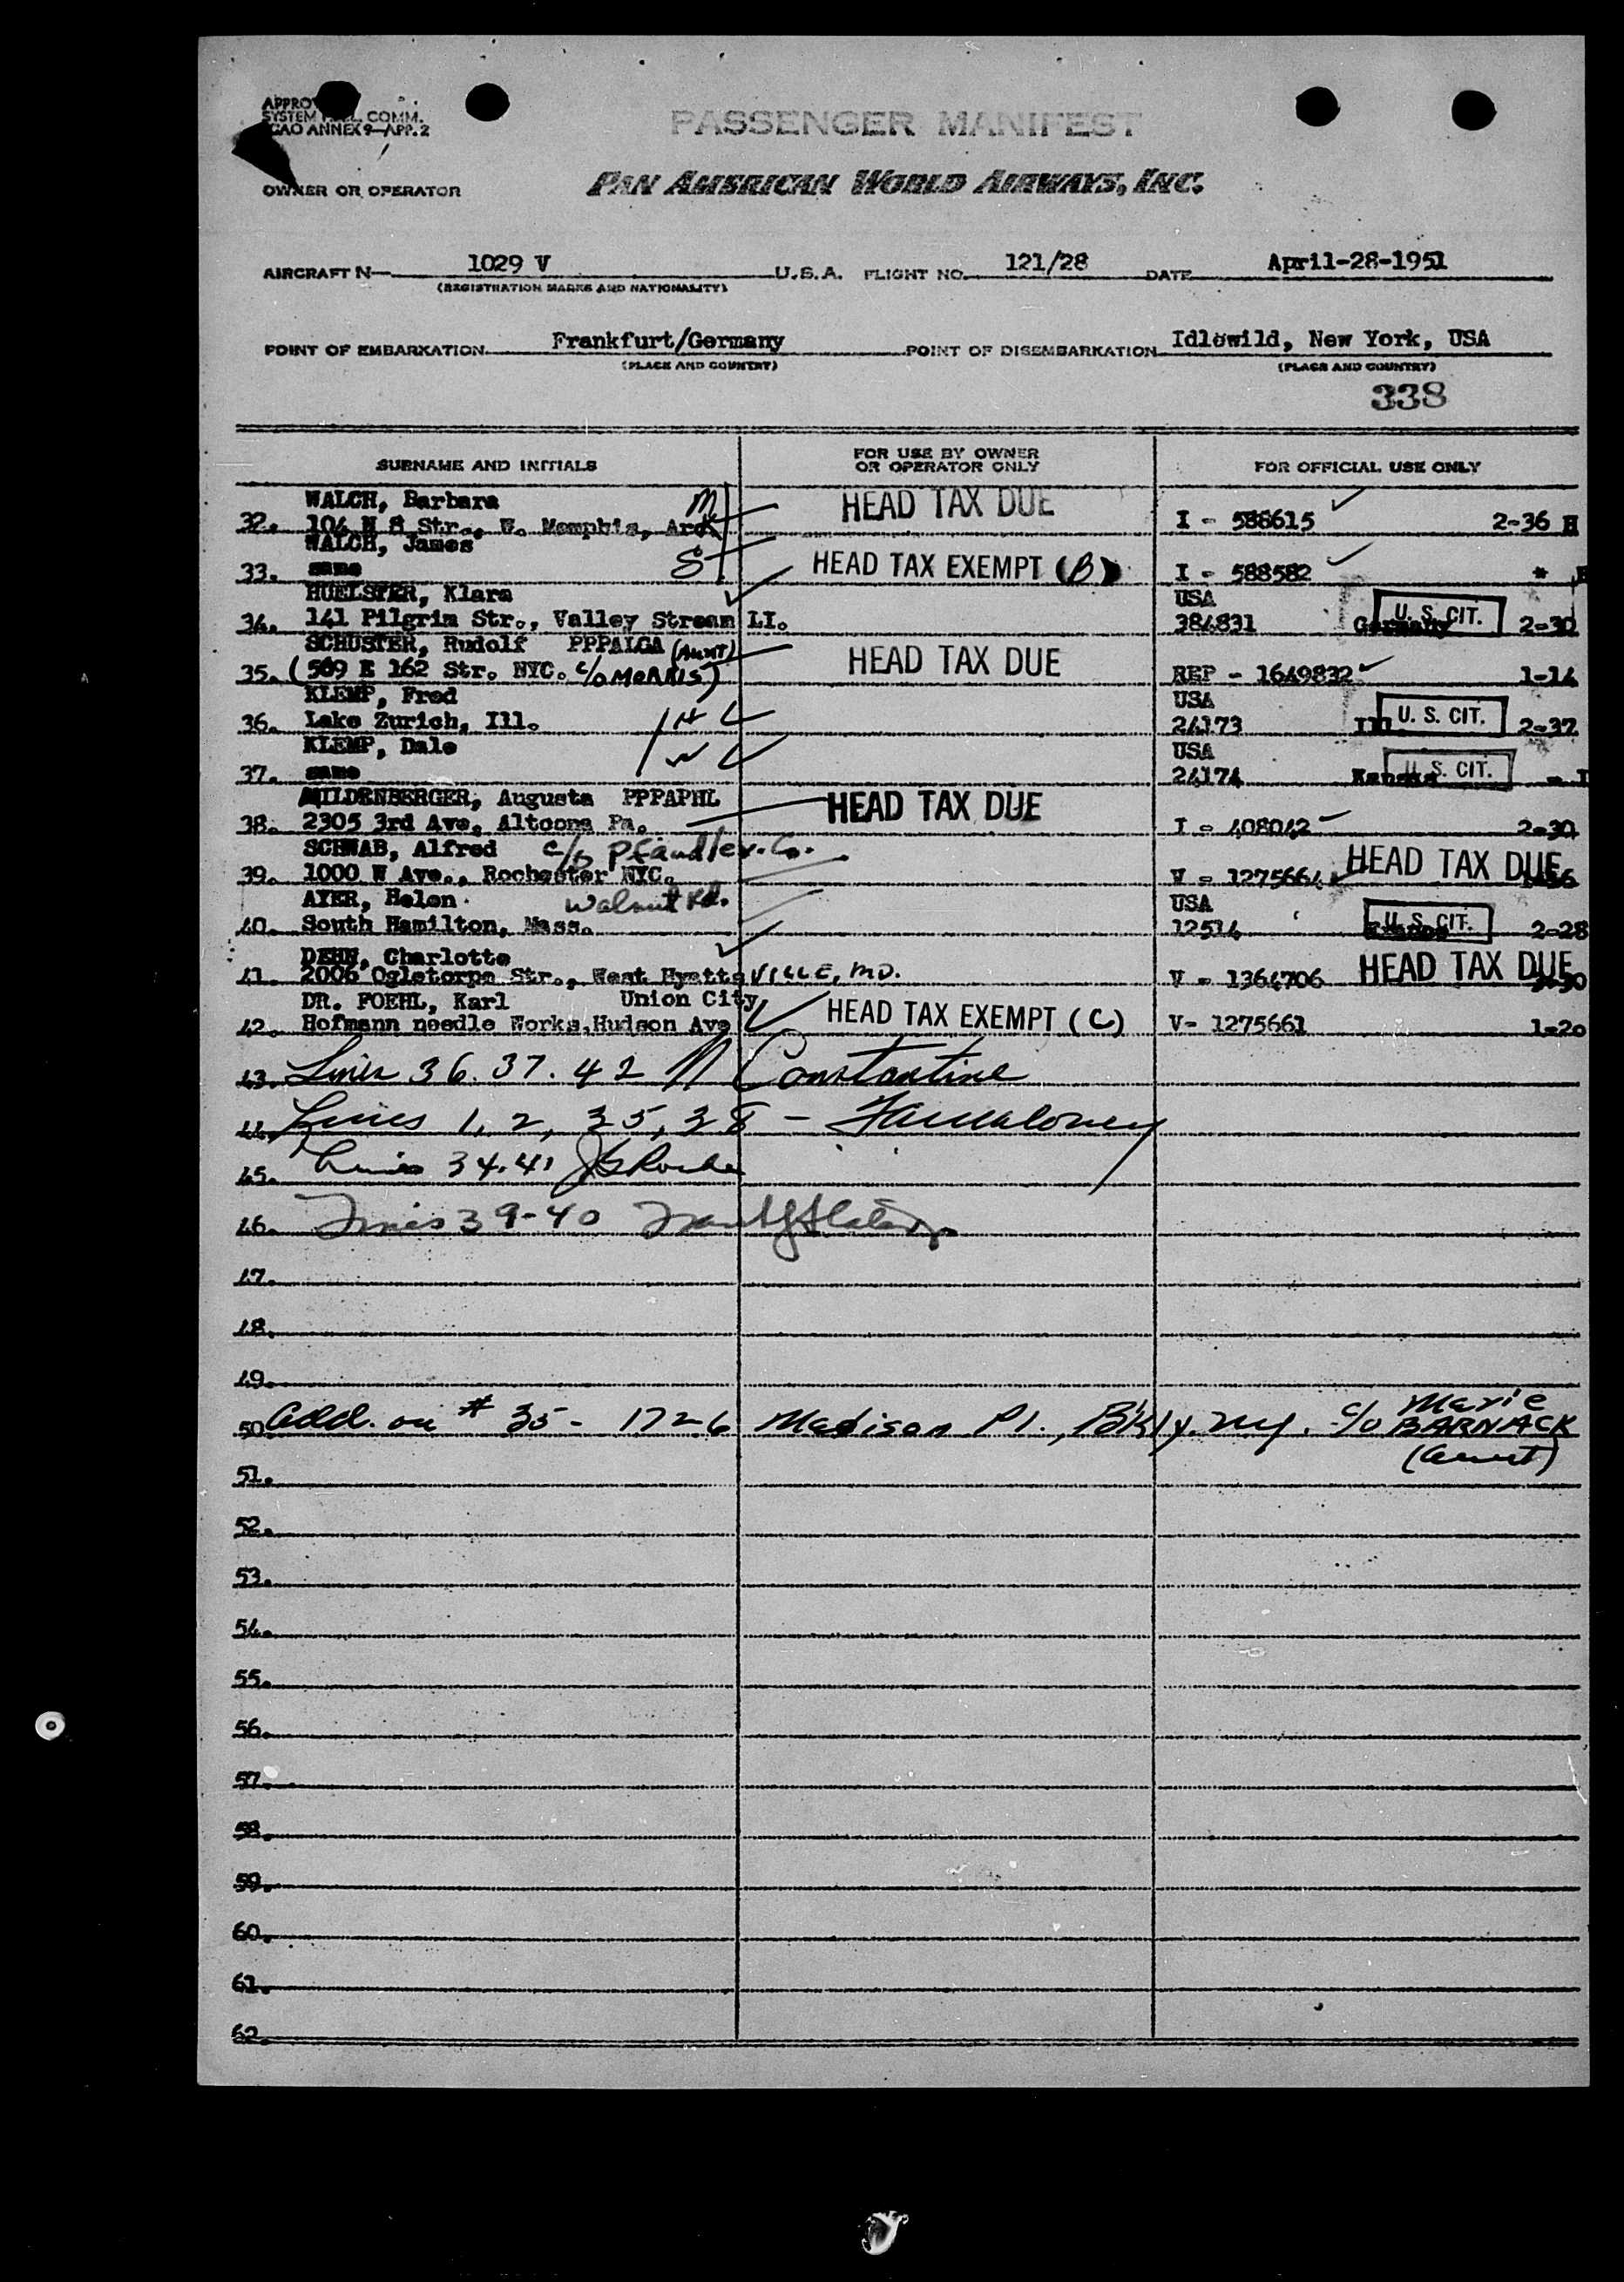 APPRO
SYSTEM COMM.
ICAO ANNEX 9—APP. 2
PASSENGER MANIFEST
OWNER OR OPERATOR PAN AMERICAN WORLD AIRWAYS, INC.
AIRCRAFT N— 1029 V U.S.A. FLIGHT NO. 121/28 DATE April-28-1951
(REGISTRATION MARKS AND NATIONALITY)
POINT OF EMBARKATION Frankfurt/Germany POINT OF DISEMBARKATION Idlewild, New York, USA
(PLACE AND COUNTRY) (PLACE AND COUNTRY)
338
SURNAME AND INITIALS FOR USE BY OWNER OR OPERATOR ONLY FOR OFFICIAL USE ONLY
WALCH, Barbara M HEAD TAX DUE
32. 104 N 8 Str., W. Memphis, Ark I - 588615 2-36 H
WALCH, James
33. same S HEAD TAX EXEMPT (B) I - 588582 "
HUELSTER, Klara USA
34. 141 Pilgrim Str., Valley Stream LI. 384831 Germany U. S. CIT. 2-30
SCHUSTER, Rudolf PPPALGA (AUNT) HEAD TAX DUE
35. (509 E 162 Str. NYC. c/o MORRIS) REP - 1649832 1-14
KLEMP, Fred USA
36. Lake Zurich, Ill. 24173 Ill. U. S. CIT. 2-37
KLEMP, Dale USA
37. same 24174 Kansas U. S. CIT.
MILDENBERGER, Augusta PPPAPHL HEAD TAX DUE
38. 2305 3rd Ave, Altoona Pa. I - 408042 2-30
SCHWAB, Alfred c/o Pfaudler. Co.
39. 1000 W Ave., Rochester NYC. V - 1275664 HEAD TAX DUE
AYER, Helen Walnut Rd. USA
40. South Hamilton, Mass. 12514 U. S. CIT. 2-28
DEHN, Charlotte
41. 2006 Ogletorpe Str., West HyattsVILLE, MD. V - 1364706 HEAD TAX DUE
DR. FOEHL, Karl Union City
42. Hofmann needle Works, Hudson Ave HEAD TAX EXEMPT (C) V- 1275661 1-20
43. Lines 36. 37. 42 N Constantine
44. Lines 1, 2, 35, 38 -
45. Lines 34. 41
46. Lines 39-40
47.
48.
49.
50. Add. on # 35 - 1726 Madison Pl., Bkly. NY. c/o Marie BARNACK
(aunt)
51.
52.
53.
54.
55.
56.
57.
58.
59.
60.
61.
62.